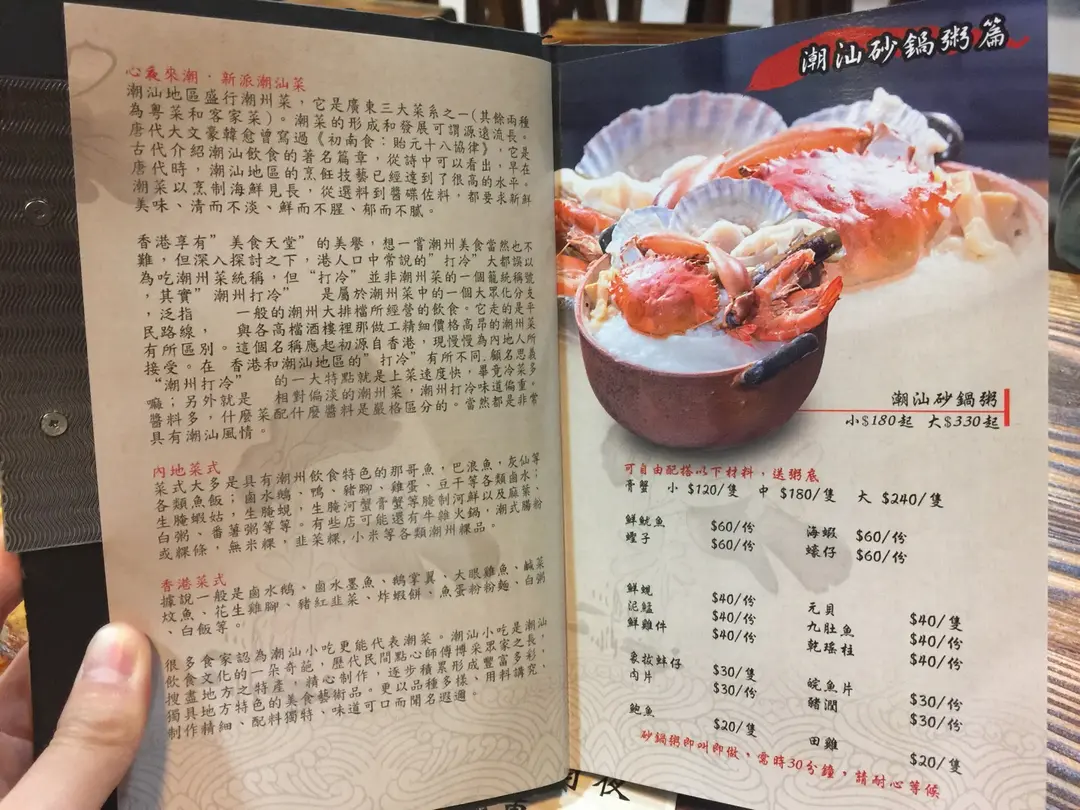 心義來潮．新派潮汕菜
潮汕地區盛行潮州菜，它是廣東三大菜系之一(其餘兩種
為粵菜和客家菜)。潮菜的形成和發展可謂源遠流長。
唐代大文豪韓愈曾寫過《初南食：貽元十八協律》，它是
古代介紹潮汕飲食的著名篇章，從詩中可以看出，早在
唐代時，潮汕地區的烹飪技藝已經達到了很高的水平。
潮菜以烹制海鮮見長，從選料到醬碟佐料，都要求新鮮
美味、清而不淡、鮮而不腥、郁而不膩。
香港享有”美食天堂”的美譽，想一嘗潮州美食當然也不
難，但深入探討之下，港人口中常說的”打冷”大都誤以
為吃潮州菜統稱，但“打冷”並非潮州菜的一個籠統稱號
，其實”潮州打冷” 是屬於潮州菜中的一個大眾化分支
，泛指 一般的潮州大排檔所經營的飲食。它走的是平
民路線， 與各高檔酒樓裡那做工精細價格高昂的潮州菜
有所區別。這個名稱應起初源自香港，現慢慢為內地人所
接受。在 香港和潮汕地區的”打冷”有所不同.顧名思義
“潮州打冷” 的一大特點就是上菜速度快，畢竟冷菜多
嘛；另外就是 相對偏淡的潮州菜，潮州打冷味道偏重。
醬料多，什麼菜配什麼醬料是嚴格區分的。當然都是非常
具有潮汕風情。
內地菜式
菜式大多是具有潮州飲食特色的那哥魚，巴浪魚，灰仙等
各類魚飯；鹵水鵝、鴨、豬腳、雞蛋、豆干等各類鹵水；
生腌蝦姑，生腌蜆，生腌河蟹膏蟹等腌制河鮮以及麻葉、
白粥、番薯粥等等。有些店可能還有牛雜火鍋，潮式腸粉
或粿條，無米粿，韭菜粿,小米等各類潮州粿品。
香港菜式
據說一般是鹵水鵝、鹵水墨魚、鵝掌翼、大眼雞魚、鹹菜
炆魚、花生雞腳、豬紅韭菜、炸蝦餅、魚蛋粉粉麵、白粥
、白飯等。
很多食家認為潮汕小吃更能代表潮菜。潮汕小吃是潮汕
飲食文化的一朵奇葩，歷代民間點心師傅博采眾家之長，
搜盡地方之特產，精心制作，逐步積累形成豐富多彩，
獨具地方特色的美食藝術品。更以品種多樣、用料講究、
制作精細、配料獨特、味道可口而聞名遐邇。
潮汕砂鍋粥篇
潮汕砂鍋粥
小$180起 大$330起
可自由配搭以下材料，送粥底
膏蟹 小 $120/隻 中 $180/隻 大 $240/隻
鮮魷魚 $60/份 海蝦 $60/份
蟶子 $60/份 蠔仔 $60/份
鮮蜆 $40/份 元貝 $40/份
泥鯭 $40/份 九肚魚 $40/份
鮮雞件 $40/份 乾瑤柱 $40/份
象拔蚌仔 $30/隻 皖魚片 $30/份
肉片 $30/份 豬潤 $30/份
鮑魚 $20/隻 田雞 $20/隻
砂鍋粥即叫即做，需時30分鐘，請耐心等候